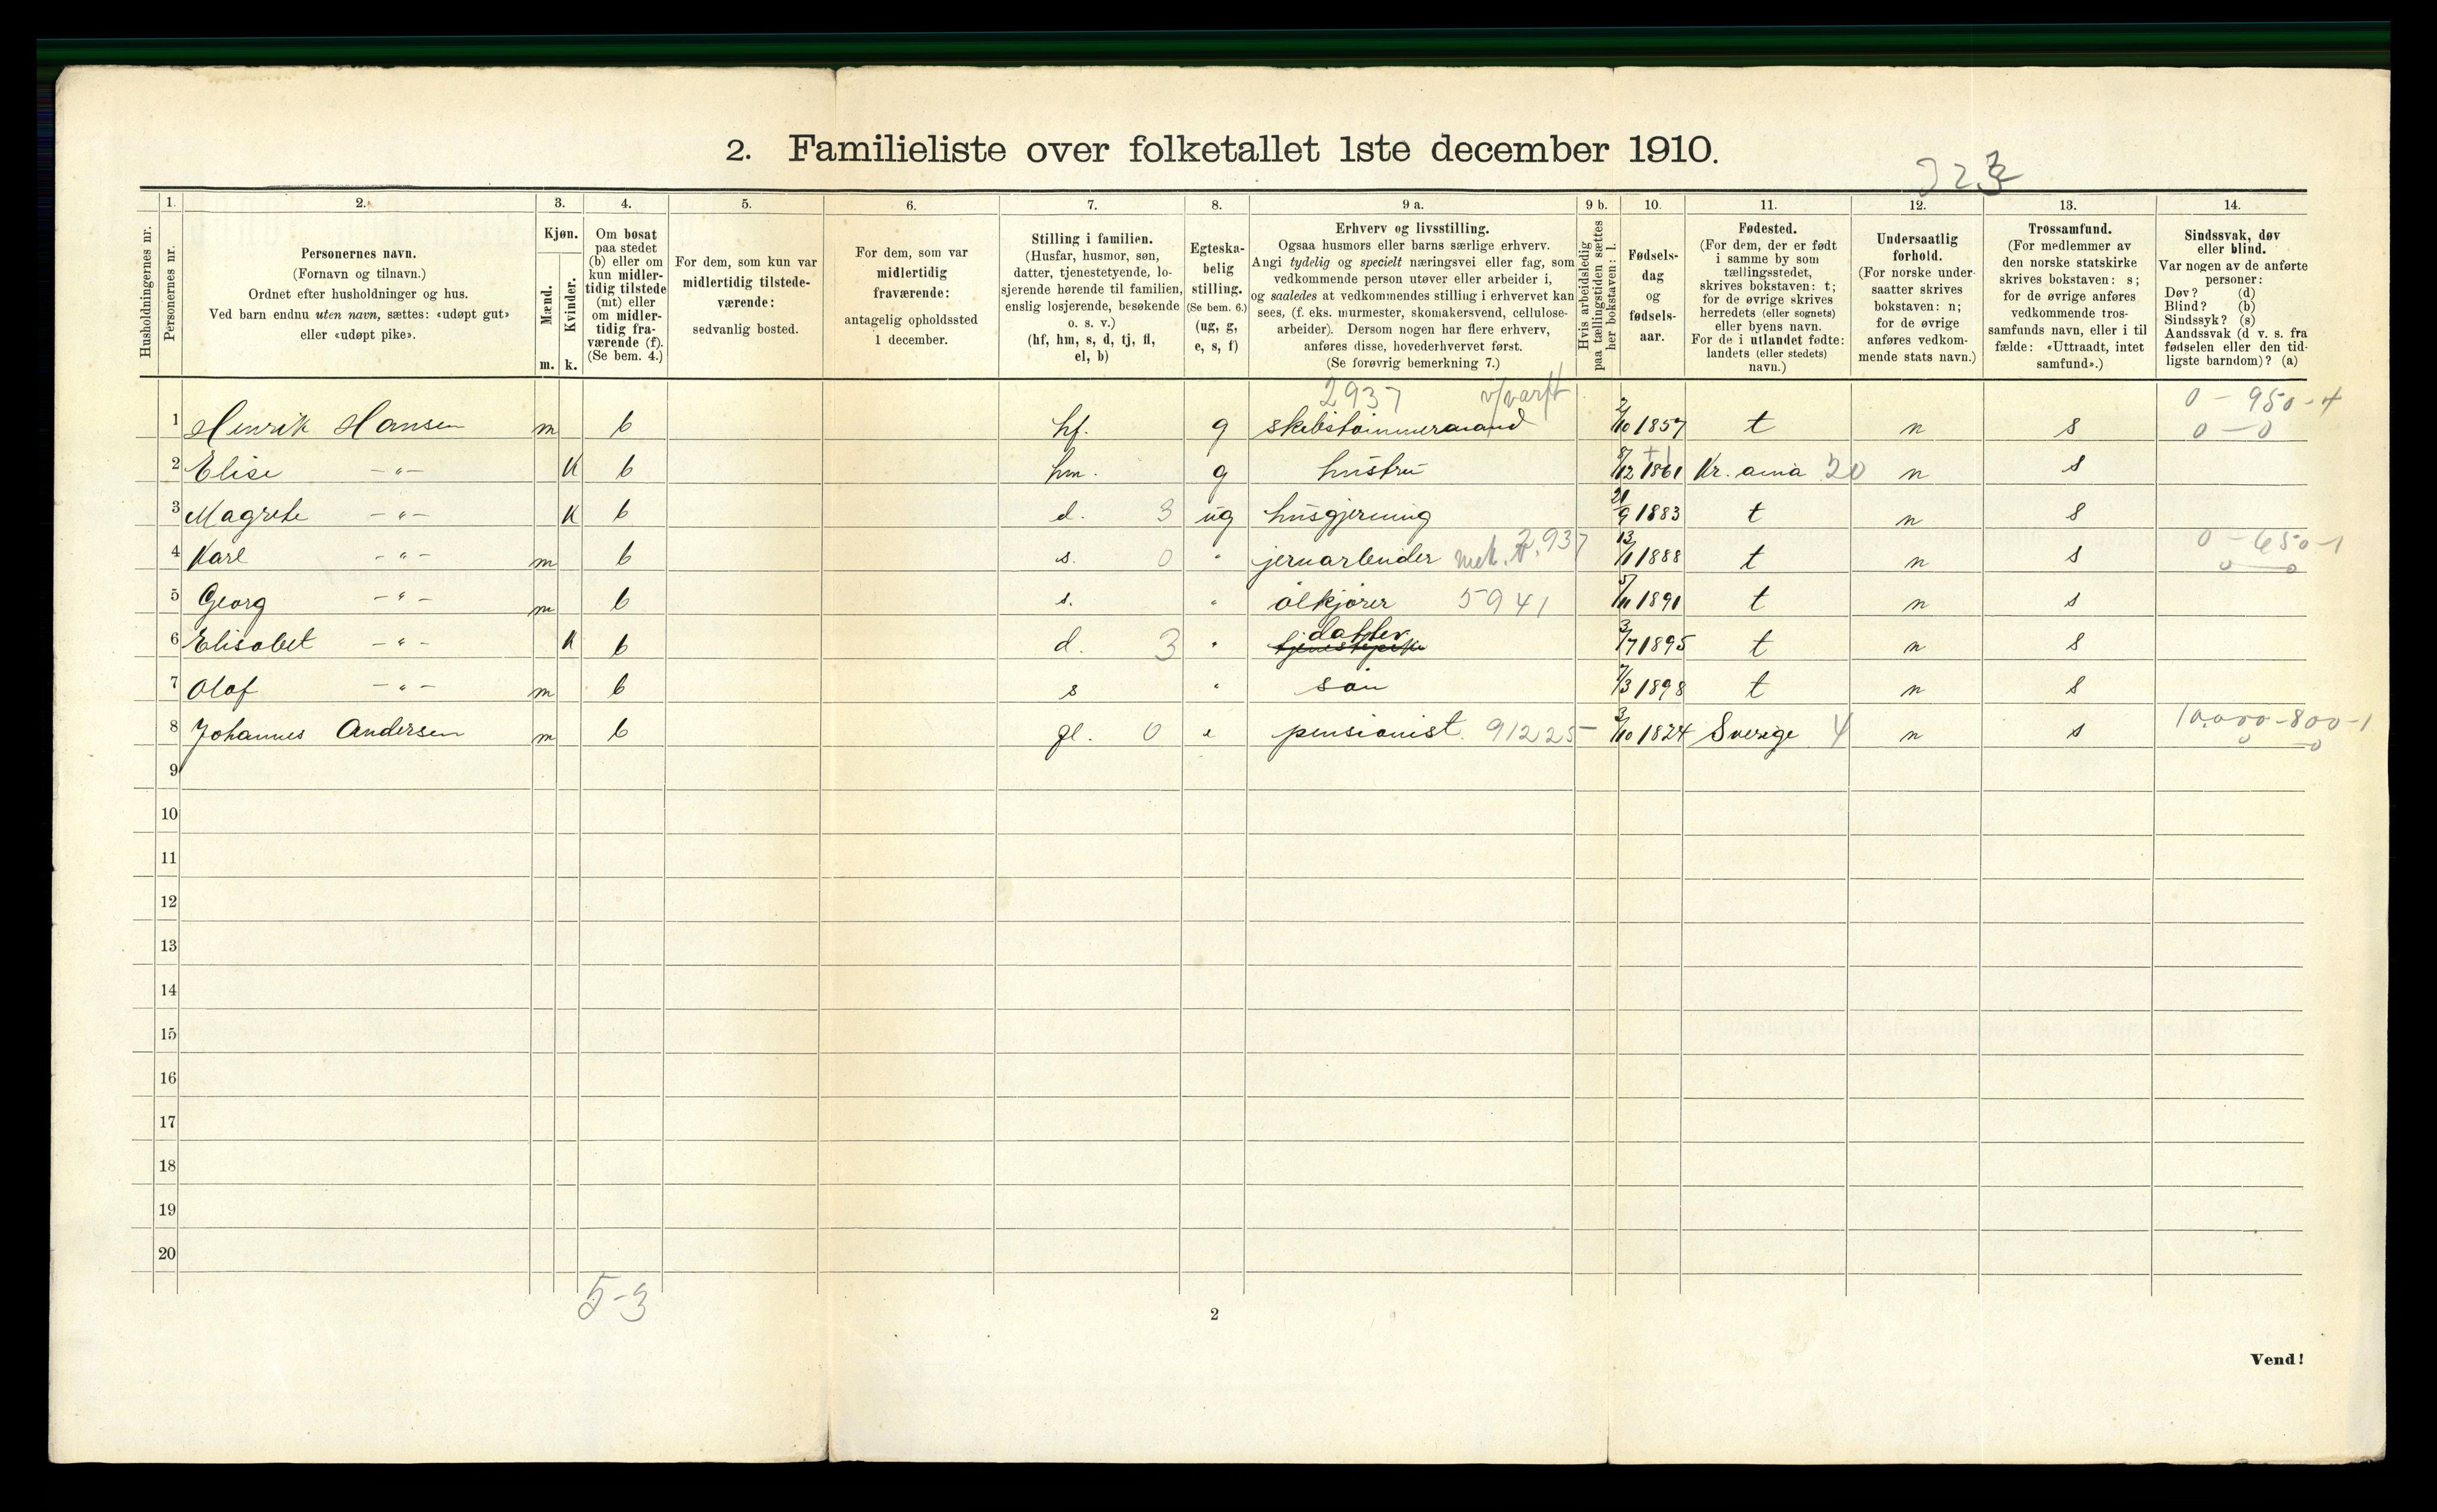 2. Familieliste over folketallet 1ste december 1910.
1. 2. 3. 4. 5. 6. 7. 8. 9 a. 9 b. 10. 11. 12. 13. 14.
Husholdningernes nr.
Personernes nr.
Personernes navn.
(Fornavn og tilnavn.)
Ordnet efter husholdninger og hus.
Ved barn endnu uten navn, sættes: «udøpt gut»
eller «udøpt pike».
Kjøn.
Mænd.
m.
Kvinder.
k.
Om bosat
paa stedet
(b) eller om
kun midler-
tidig tilstede
(mt) eller
om midler-
tidig fra-
værende (f).
(Se bem. 4.)
For dem, som kun var
midlertidig tilstede-
værende:
sedvanlig bosted.
For dem, som var
midlertidig
fraværende:
antagelig opholdssted
1 december.
Stilling i familien.
(Husfar, husmor, søn,
datter, tjenestetyende, lo-
sjerende hørende til familien,
enslig losjerende, besøkende
o. s. v.)
(hf, hm, s, d, tj, fl,
el, b)
Egteska-
belig
stilling.
(Se bem. 6.)
(ug, g,
e, s, f)
Erhverv og livsstilling.
Ogsaa husmors eller barns særlige erhverv.
Angi tydelig og specielt næringsvei eller fag, som
vedkommende person utøver eller arbeider i,
og saaledes at vedkommendes stilling i erhvervet kan
sees, (f. eks. murmester, skomakersvend, cellulose-
arbeider). Dersom nogen har flere erhverv,
anføres disse, hovederhvervet først.
(Se forøvrig bemerkning 7.)
Hvis arbeidsledig
paa tællingstiden sættes
her bokstaven: l.
Fødsels-
dag
og
fødsels-
aar.
Fødested.
(For dem, der er født
i samme by som
tællingsstedet,
skrives bokstaven: t;
for de øvrige skrives
herredets (eller sognets)
eller byens navn.
For de i utlandet fødte:
landets (eller stedets)
navn.)
Undersaatlig
forhold.
(For norske under-
saatter skrives
bokstaven: n;
for de øvrige
anføres vedkom-
mende stats navn.)
Trossamfund.
(For medlemmer av
den norske statskirke
skrives bokstaven: s;
for de øvrige anføres
vedkommende tros-
samfunds navn, eller i til
fælde: «Uttraadt, intet
samfund».)
Sindssvak, døv
eller blind.
Var nogen av de anførte
personer:
Døv? (d)
Blind? (b)
Sindssyk? (s)
Aandssvak (d v. s. fra
fødselen eller den tid-
ligste barndom)? (a)
2937 v/varft 0 - 950 - 4
1 Henrik Hansen m b hf. g skibstømmermand 2/10 1857 t n s 0 - 0
2 Elise -"- K b hm. g hustru 8/12 1861 Kr. ania 20 n s
3 Magrete -"- K b d. 3 ug husgjerning 21/9 1883 t n s
4 Karl -"- m b s. 0 " jernarbeider mek. v. 2937 13/1 1888 t n s 0 - 650 - 1
0 0
5 Georg -"- m b s. " ølkjører 5941 5/11 1891 t n s
6 Elisabet -"- K b d. 3 " tjenestepike datter 3/7 1895 t n s
7 Olaf -"- m b s " søn 7/3 1898 t n s
8 Johannes Andersen m b fl. 0 e pensionist. 91225 3/10 1824 Sverige 4 n s 10,000 - 800 - 1
0 0
9
10
11
12
13
14
15
16
17
18
19
20
5-3
2
Vend!